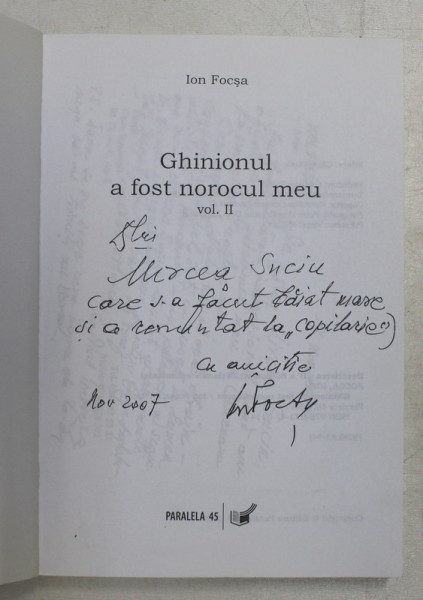 Ion Focşa
Ghinionul
a fost norocul meu
vol. II
Dlui
Mircea Suciu
care s-a făcut băiat mare
şi a renunţat la „copilărie”)
Cu amiciţie
Nov 2007 Ion Focşa
PARALELA 45